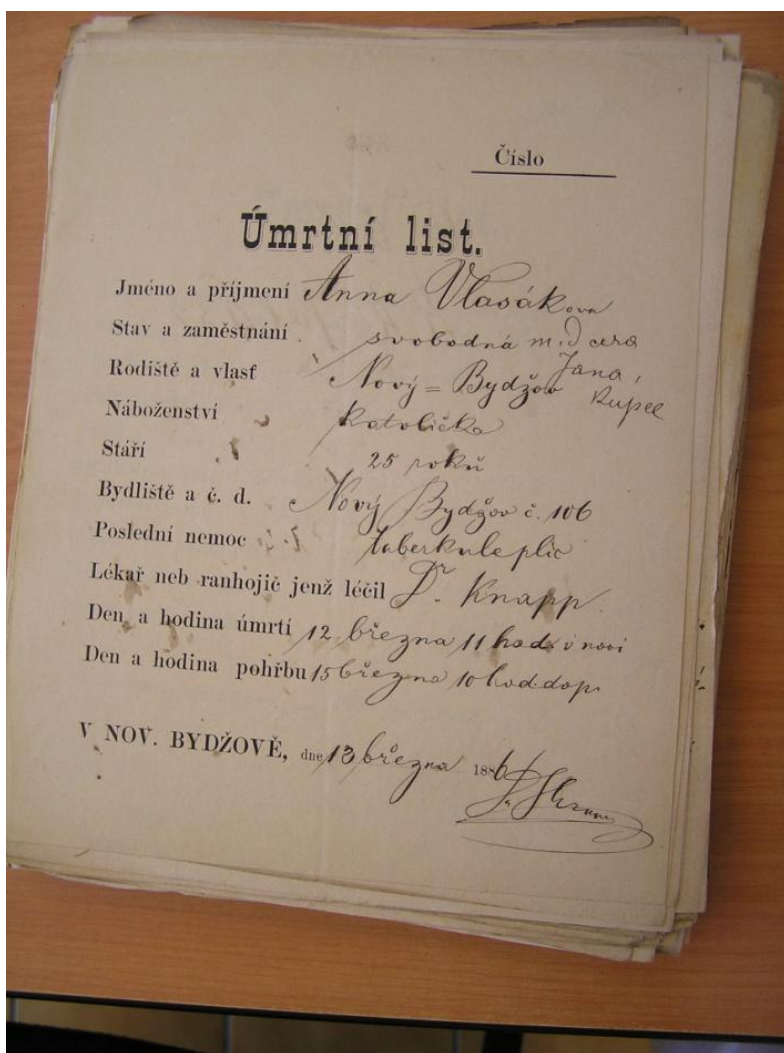 Číslo
Úmrtní list.
Jméno a příjmení Anna Vlasákova
Stav a zaměstnání svobodná m. dcera
Jana,
Rodiště a vlasť Nový=Bydžov kupce
Náboženství katolička
Stáří 25 roků
Bydliště a č. d. Nový Bydžov č. 106
Poslední nemoc tuberkule plic
Lékař neb ranhojič jenž léčil Dr. Knapp.
Den a hodina úmrtí 12 března 11 hod. v noci
Den a hodina pohřbu 15 března 10 hod. dop.
V NOV. BYDŽOVĚ, dne 13 března 1886